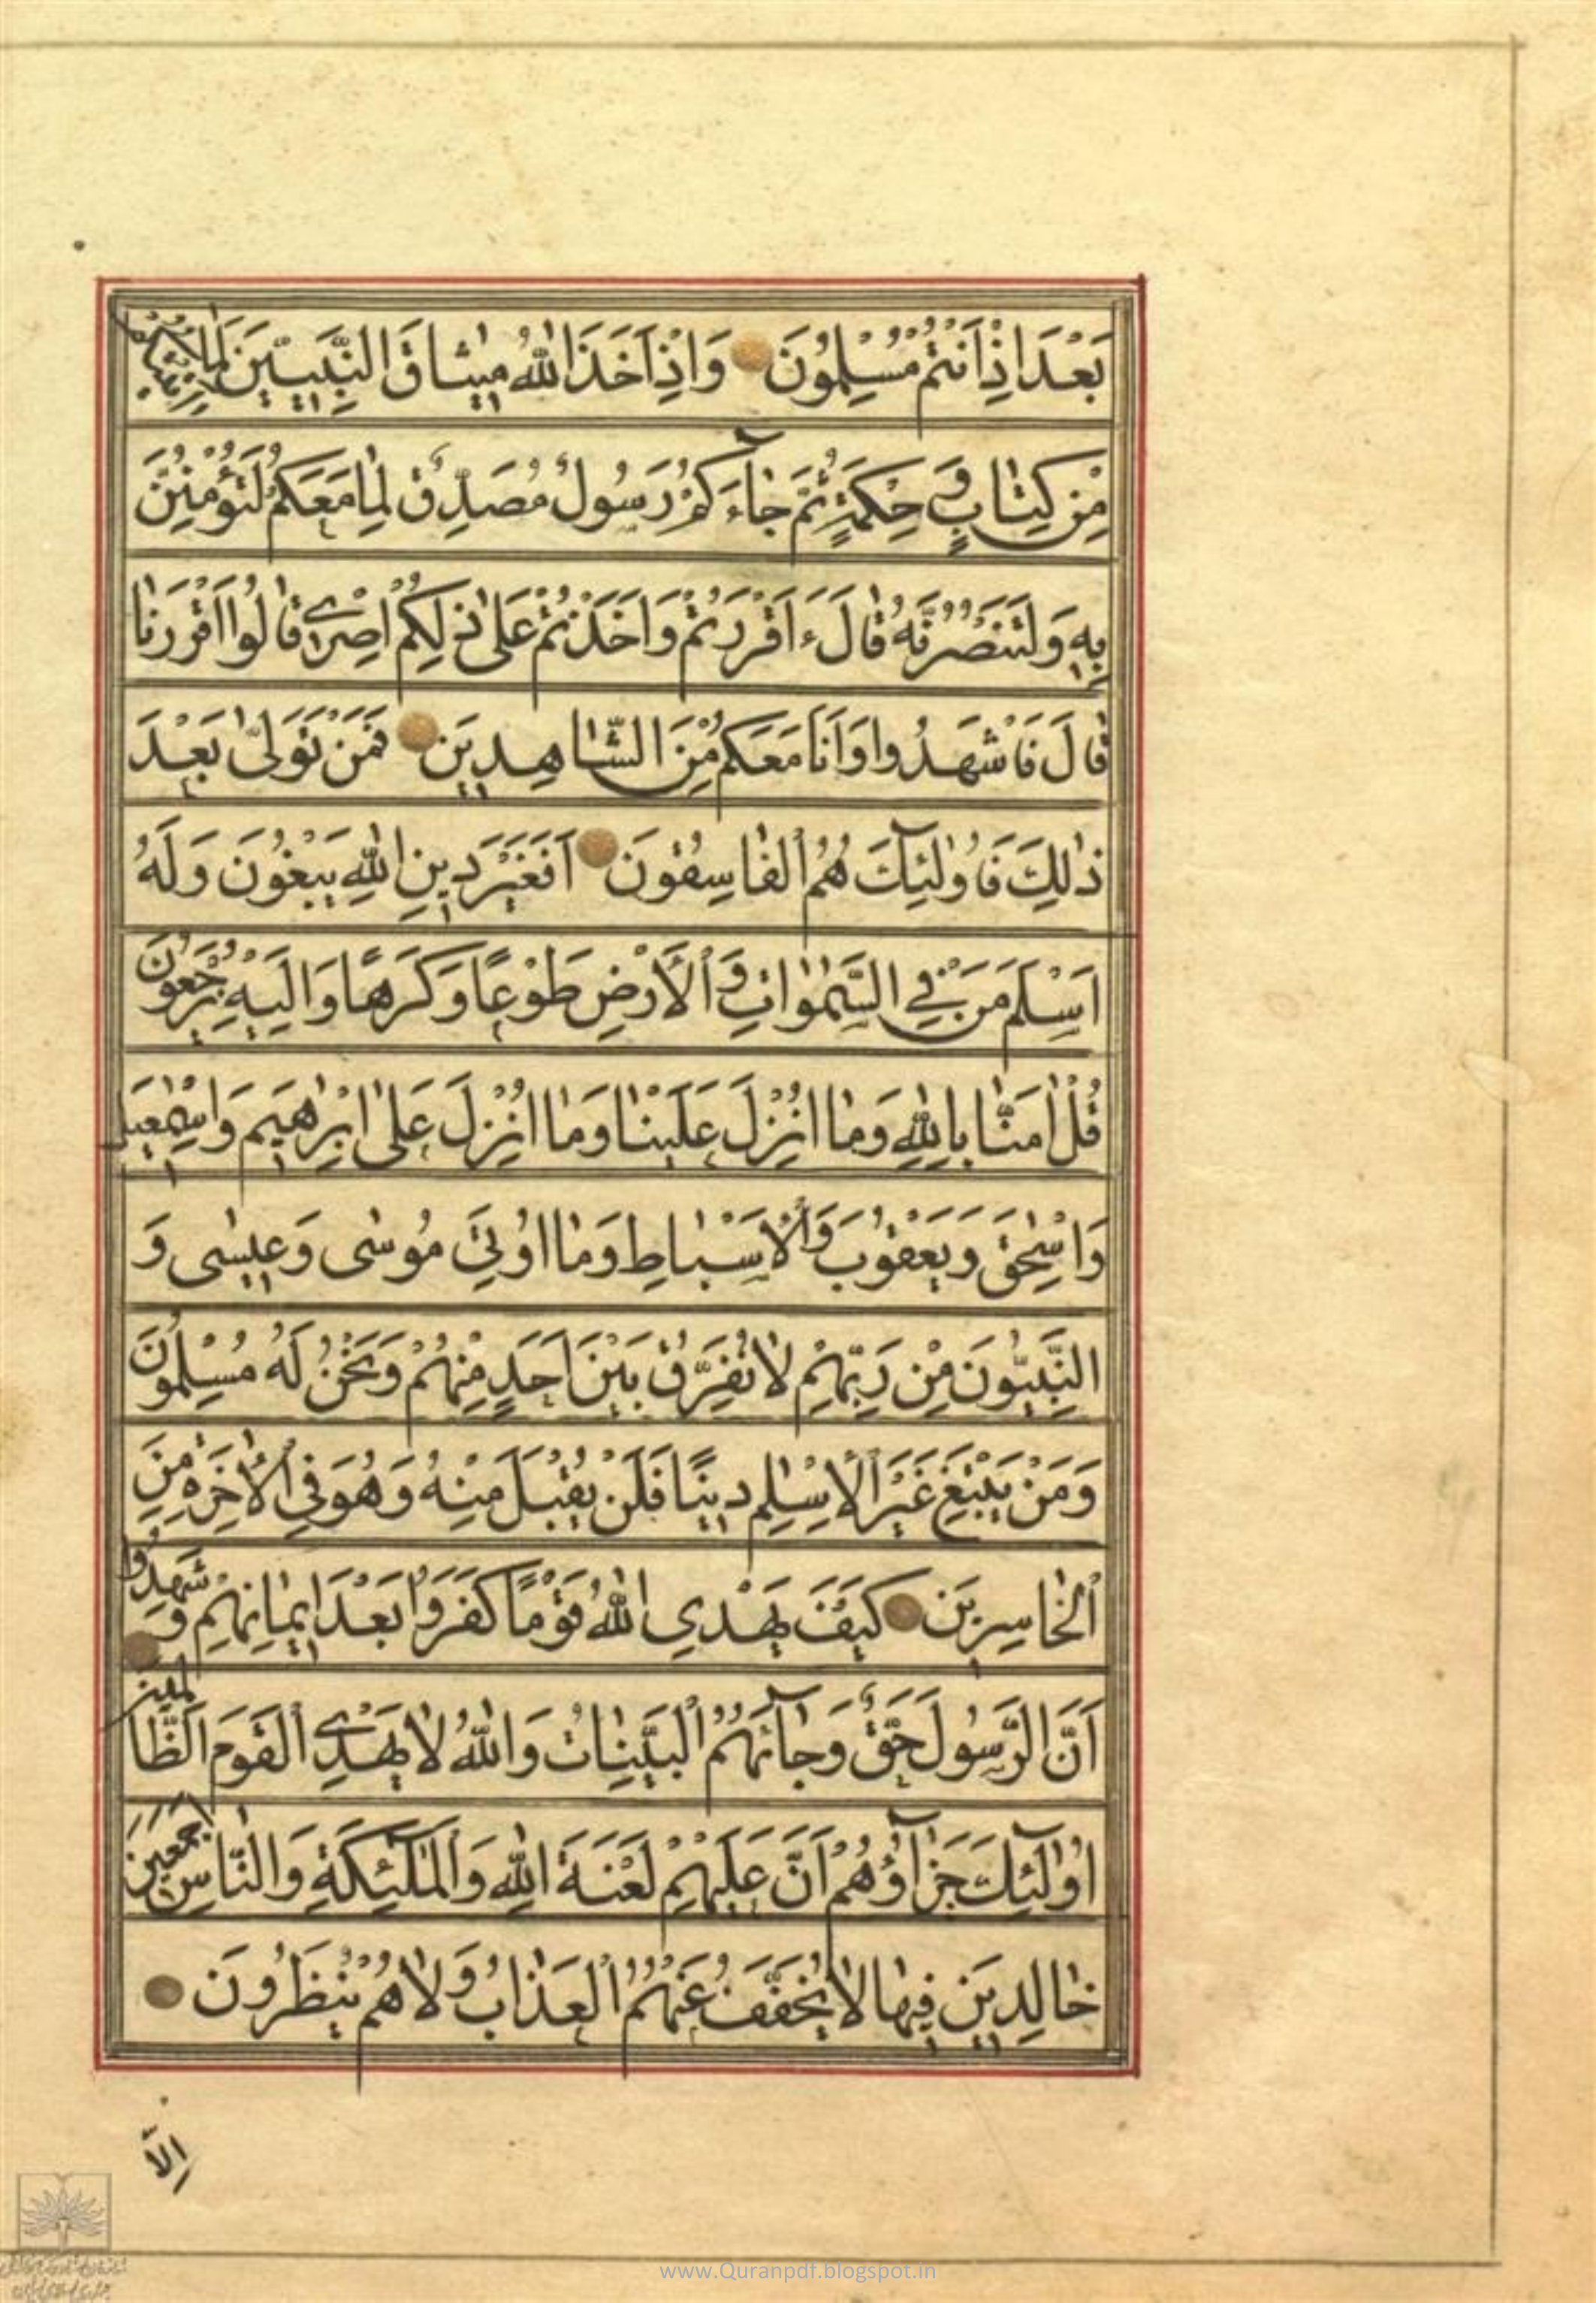 بَعْدَ اِذْ اَنْتُمْ مُسْلِمُونَ وَاِذْ اَخَذَ اللهُ مِيثَاقَ النَّبِيّينَ لَمَا
مِنْ كِتَابٍ وَ حِكْمَةٍ ثُمَّ جَآءَكُمْ رَسُولٌ مُصَدِّقٌ لِمَا مَعَكُمْ لَتُؤْمِنُنَّ
بِهِ وَلَتَنْصُرُنَّهُ قَالَ ءَاَقْرَرْتُمْ وَاَخَذْتُمْ عَلىٰ ذٰلِكُمْ اِصْرِي قَالُوا اَقْرَرْنَا
قَالَ فَاشْهَدُوا وَاَنَا مَعَكُمْ مِنَ الشَّاهِدِينَ فَمَنْ تَوَلّىٰ بَعْدَ
ذٰلِكَ فَاُولٰئِكَ هُمُ الْفَاسِقُونَ اَفَغَيْرَ دِينِ اللهِ يَبْغُونَ وَلَهُ
اَسْلَمَ مَنْ فِي السَّمٰوَاتِ وَالْاَرْضِ طَوْعًا وَكَرْهًا وَاِلَيْهِ يُرْجَعُونَ
قُلْ اٰمَنَّا بِاللهِ وَمَا اُنْزِلَ عَلَيْنَا وَمَا اُنْزِلَ عَلىٰ اِبْرٰهِيمَ وَاِسْمٰعِيلَ
وَاِسْحٰقَ وَيَعْقُوبَ وَالْاَسْبَاطِ وَمَا اُوتِيَ مُوسٰى وَعِيسٰى وَ
النَّبِيُّونَ مِنْ رَبِّهِمْ لَا نُفَرِّقُ بَيْنَ اَحَدٍ مِنْهُمْ وَنَحْنُ لَهُ مُسْلِمُونَ
وَمَنْ يَبْتَغِ غَيْرَ الْاِسْلٰمِ دِينًا فَلَنْ يُقْبَلَ مِنْهُ وَهُوَ فِي الْاٰخِرَةِ مِنَ
الْخَاسِرِينَ كَيْفَ يَهْدِي اللهُ قَوْمًا كَفَرُوا بَعْدَ اِيمَانِهِمْ وَ شَهِدُوا
اَنَّ الرَّسُولَ حَقٌّ وَجَآئَهُمُ الْبَيِّنَاتُ وَاللهُ لَا يَهْدِي الْقَوْمَ الظَّالِمِينَ
اُولٰئِكَ جَزَآؤُهُمْ اَنَّ عَلَيْهِمْ لَعْنَةَ اللهِ وَالْمَلٰئِكَةِ وَالنَّاسِ اَجْمَعِينَ
خَالِدِينَ فِيهَا لَا يُخَفَّفُ عَنْهُمُ الْعَذَابُ وَلَا هُمْ يُنْظَرُونَ
اِلاَّ
www.Quranpdf.blogspot.in